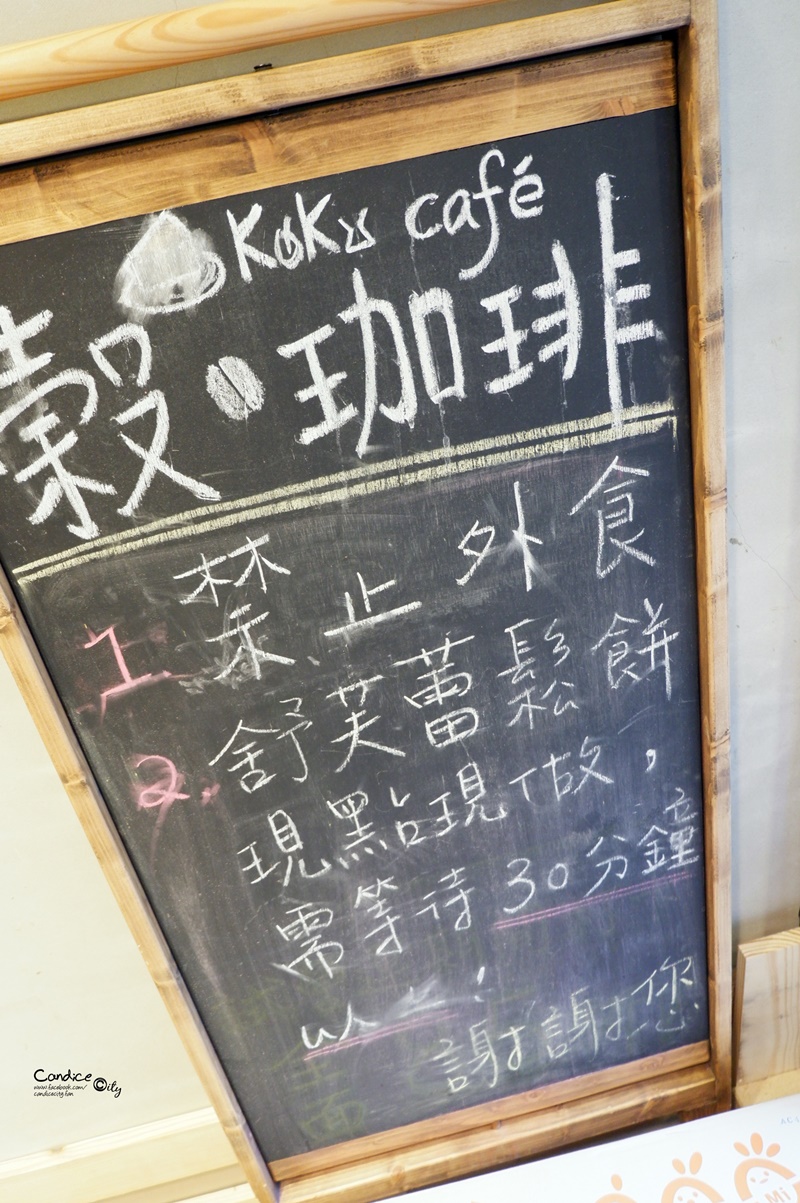 KoKu café
穀・珈琲
1. 禁止外食
2. 舒芙蕾鬆餅
現點現做，
需等待30分鐘
以上！
謝謝您
Candice City
www.facebook.com/
candicecity.fan